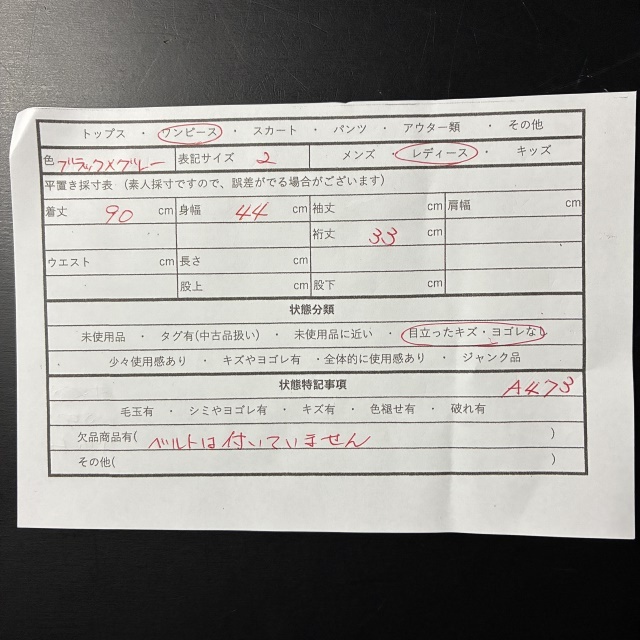 トップス ・ ワンピース ・ スカート ・ パンツ ・ アウター類 ・ その他
色 ブラック×グレー 表記サイズ 2 メンズ ・ レディース ・ キッズ
平置き採寸表 (素人採寸ですので、誤差がでる場合がございます)
着丈 90 cm 身幅 44 cm 袖丈 cm 肩幅 cm
裄丈 33 cm
ウエスト cm 長さ cm
股上 cm 股下 cm
状態分類
未使用品 ・ タグ有(中古品扱い) ・ 未使用品に近い ・ 目立ったキズ・ヨゴレなし
・ 少々使用感あり ・ キズやヨゴレ有 ・全体的に使用感あり ・ ジャンク品
状態特記事項 A473
毛玉有 ・ シミやヨゴレ有 ・ キズ有 ・ 色褪せ有 ・ 破れ有
欠品商品有( ベルトは付いていません )
その他( )